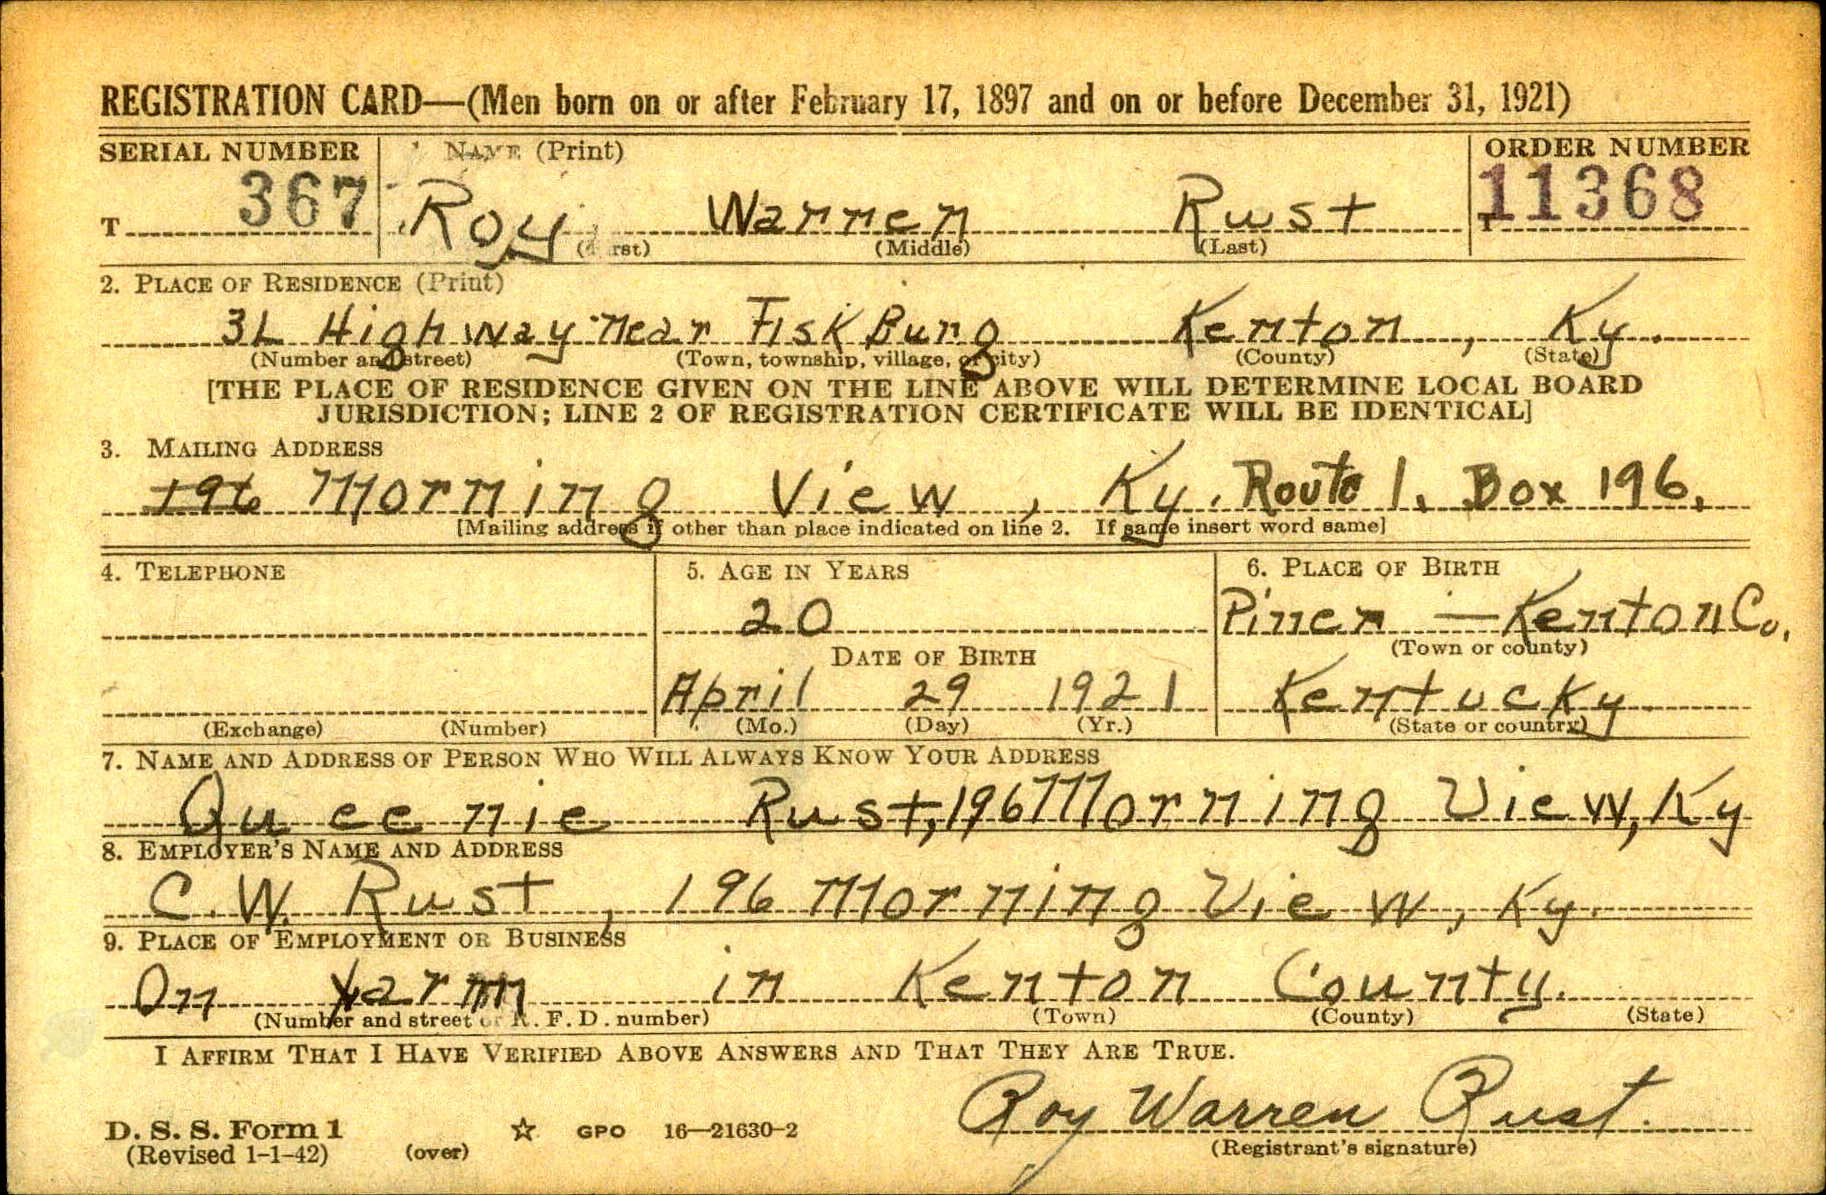 REGISTRATION CARD—(Men born on or after February 17, 1897 and on or before December 31, 1921)
SERIAL NUMBER NAME (Print) ORDER NUMBER
T 367 Roy Warren Rust T 11368
(Middle) (Last)
2. PLACE OF RESIDENCE (Print)
3L Highway near FiskBurg Kenton, Ky.
(Number and street) (Town, township, village, or city) (County) (State)
[THE PLACE OF RESIDENCE GIVEN ON THE LINE ABOVE WILL DETERMINE LOCAL BOARD
JURISDICTION; LINE 2 OF REGISTRATION CERTIFICATE WILL BE IDENTICAL]
3. MAILING ADDRESS
196 Morning View, Ky. Route 1. Box 196.
[Mailing address if other than place indicated on line 2. If same insert word same]
4. TELEPHONE 5. AGE IN YEARS 6. PLACE OF BIRTH
20 Piner — Kenton Co.
DATE OF BIRTH (Town or county)
April 29 1921 Kentucky
(Exchange) (Number) (Mo.) (Day) (Yr.) (State or country)
7. NAME AND ADDRESS OF PERSON WHO WILL ALWAYS KNOW YOUR ADDRESS
Queenie Rust, 196 Morning View, Ky
8. EMPLOYER'S NAME AND ADDRESS
C. W. Rust, 196 Morning View, Ky.
9. PLACE OF EMPLOYMENT OR BUSINESS
On farm in Kenton County.
(Number and street or R. F. D. number) (Town) (County) (State)
I AFFIRM THAT I HAVE VERIFIED ABOVE ANSWERS AND THAT THEY ARE TRUE.
Roy Warren Rust.
D. S. S. Form 1 ☆ GPO 16—21630-2
(Revised 1-1-42) (over) (Registrant's signature)